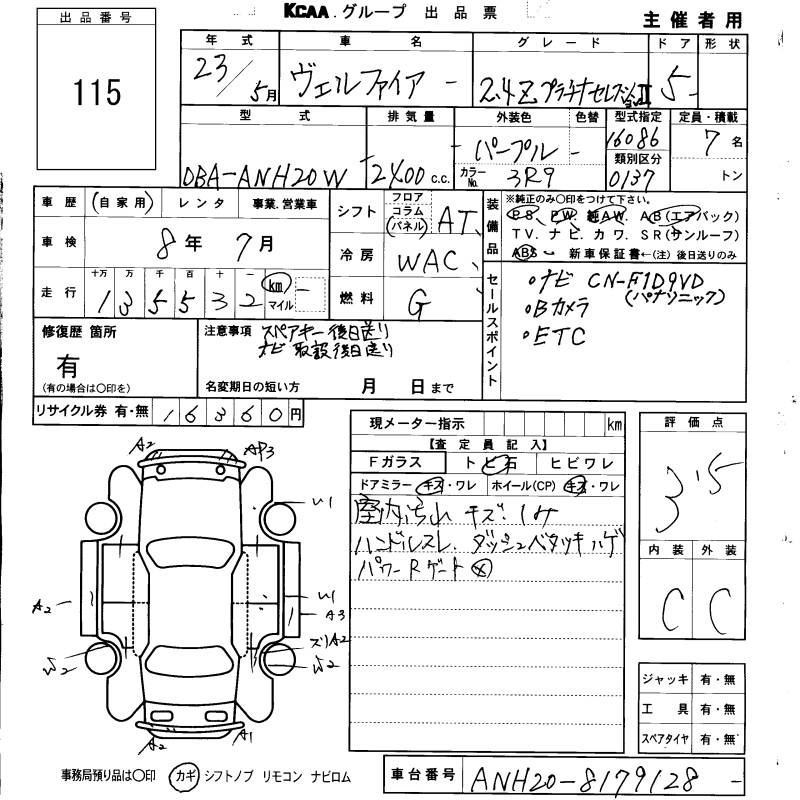 KCAA. グループ 出品票
主催者用
出品番号
115
年式 車名 グレード ドア 形状
23/5月 ヴェルファイア - 2.4Z プラチナセレクションII 5 -
型式 排気量 外装色 色替 型式指定 定員・積載
DBA-ANH20W - 2400c.c. - パープル - 16086 7名
カラーNo. 3R9 類別区分 0137 トン
車歴 (自家用) レンタ 事業.営業車
車検 8年 7月
走行 十万 万 千 百 十 一 km マイル
135532 -
シフト フロア コラム (パネル) AT
冷房 WAC
燃料 G
装備品 ※純正のみ〇印をつけて下さい。
PS. PW. 純AW. AB(エアバック)
TV. ナビ. カワ. SR(サンルーフ)
ABS 新車保証書←(注) 後日送りのみ
セールスポイント
・ナビ CN-F1D9VD
(パナソニック)
・Bカメラ
・ETC
修復歴 箇所
有
(有の場合は〇印を)
注意事項 スペアキー後日送り
ナビ取説後日送り
名変期日の短い方 月 日まで
リサイクル券 有・無 16360円
現メーター指示 km
【査定員記入】
Fガラス ト ビ石 ヒビワレ
ドアミラー キズ・ワレ ホイール(CP) キズ・ワレ
室内汚れ キズ. シミ
ハンドルスレ. ダッシュベタツキ ハゲ
パワーRゲート ×
評価点
3.5
内装 外装
C C
ジャッキ 有・無
工具 有・無
スペアタイヤ 有・無
A2 AP3
W1
A2
W1
A3
ズリA2
W2 W2
A2 A1
事務局預り品は〇印 カギ シフトノブ リモコン ナビロム
車台番号 ANH20-8179128 -